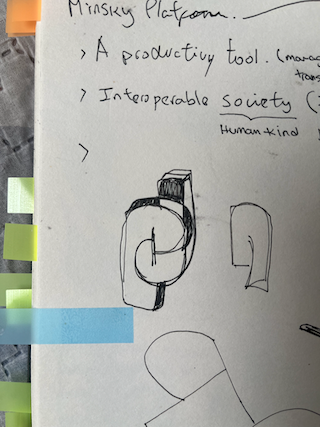 Minsky Platform.
> A productivy tool. (manag
trans
> Interoperable society (
Human-kind
>